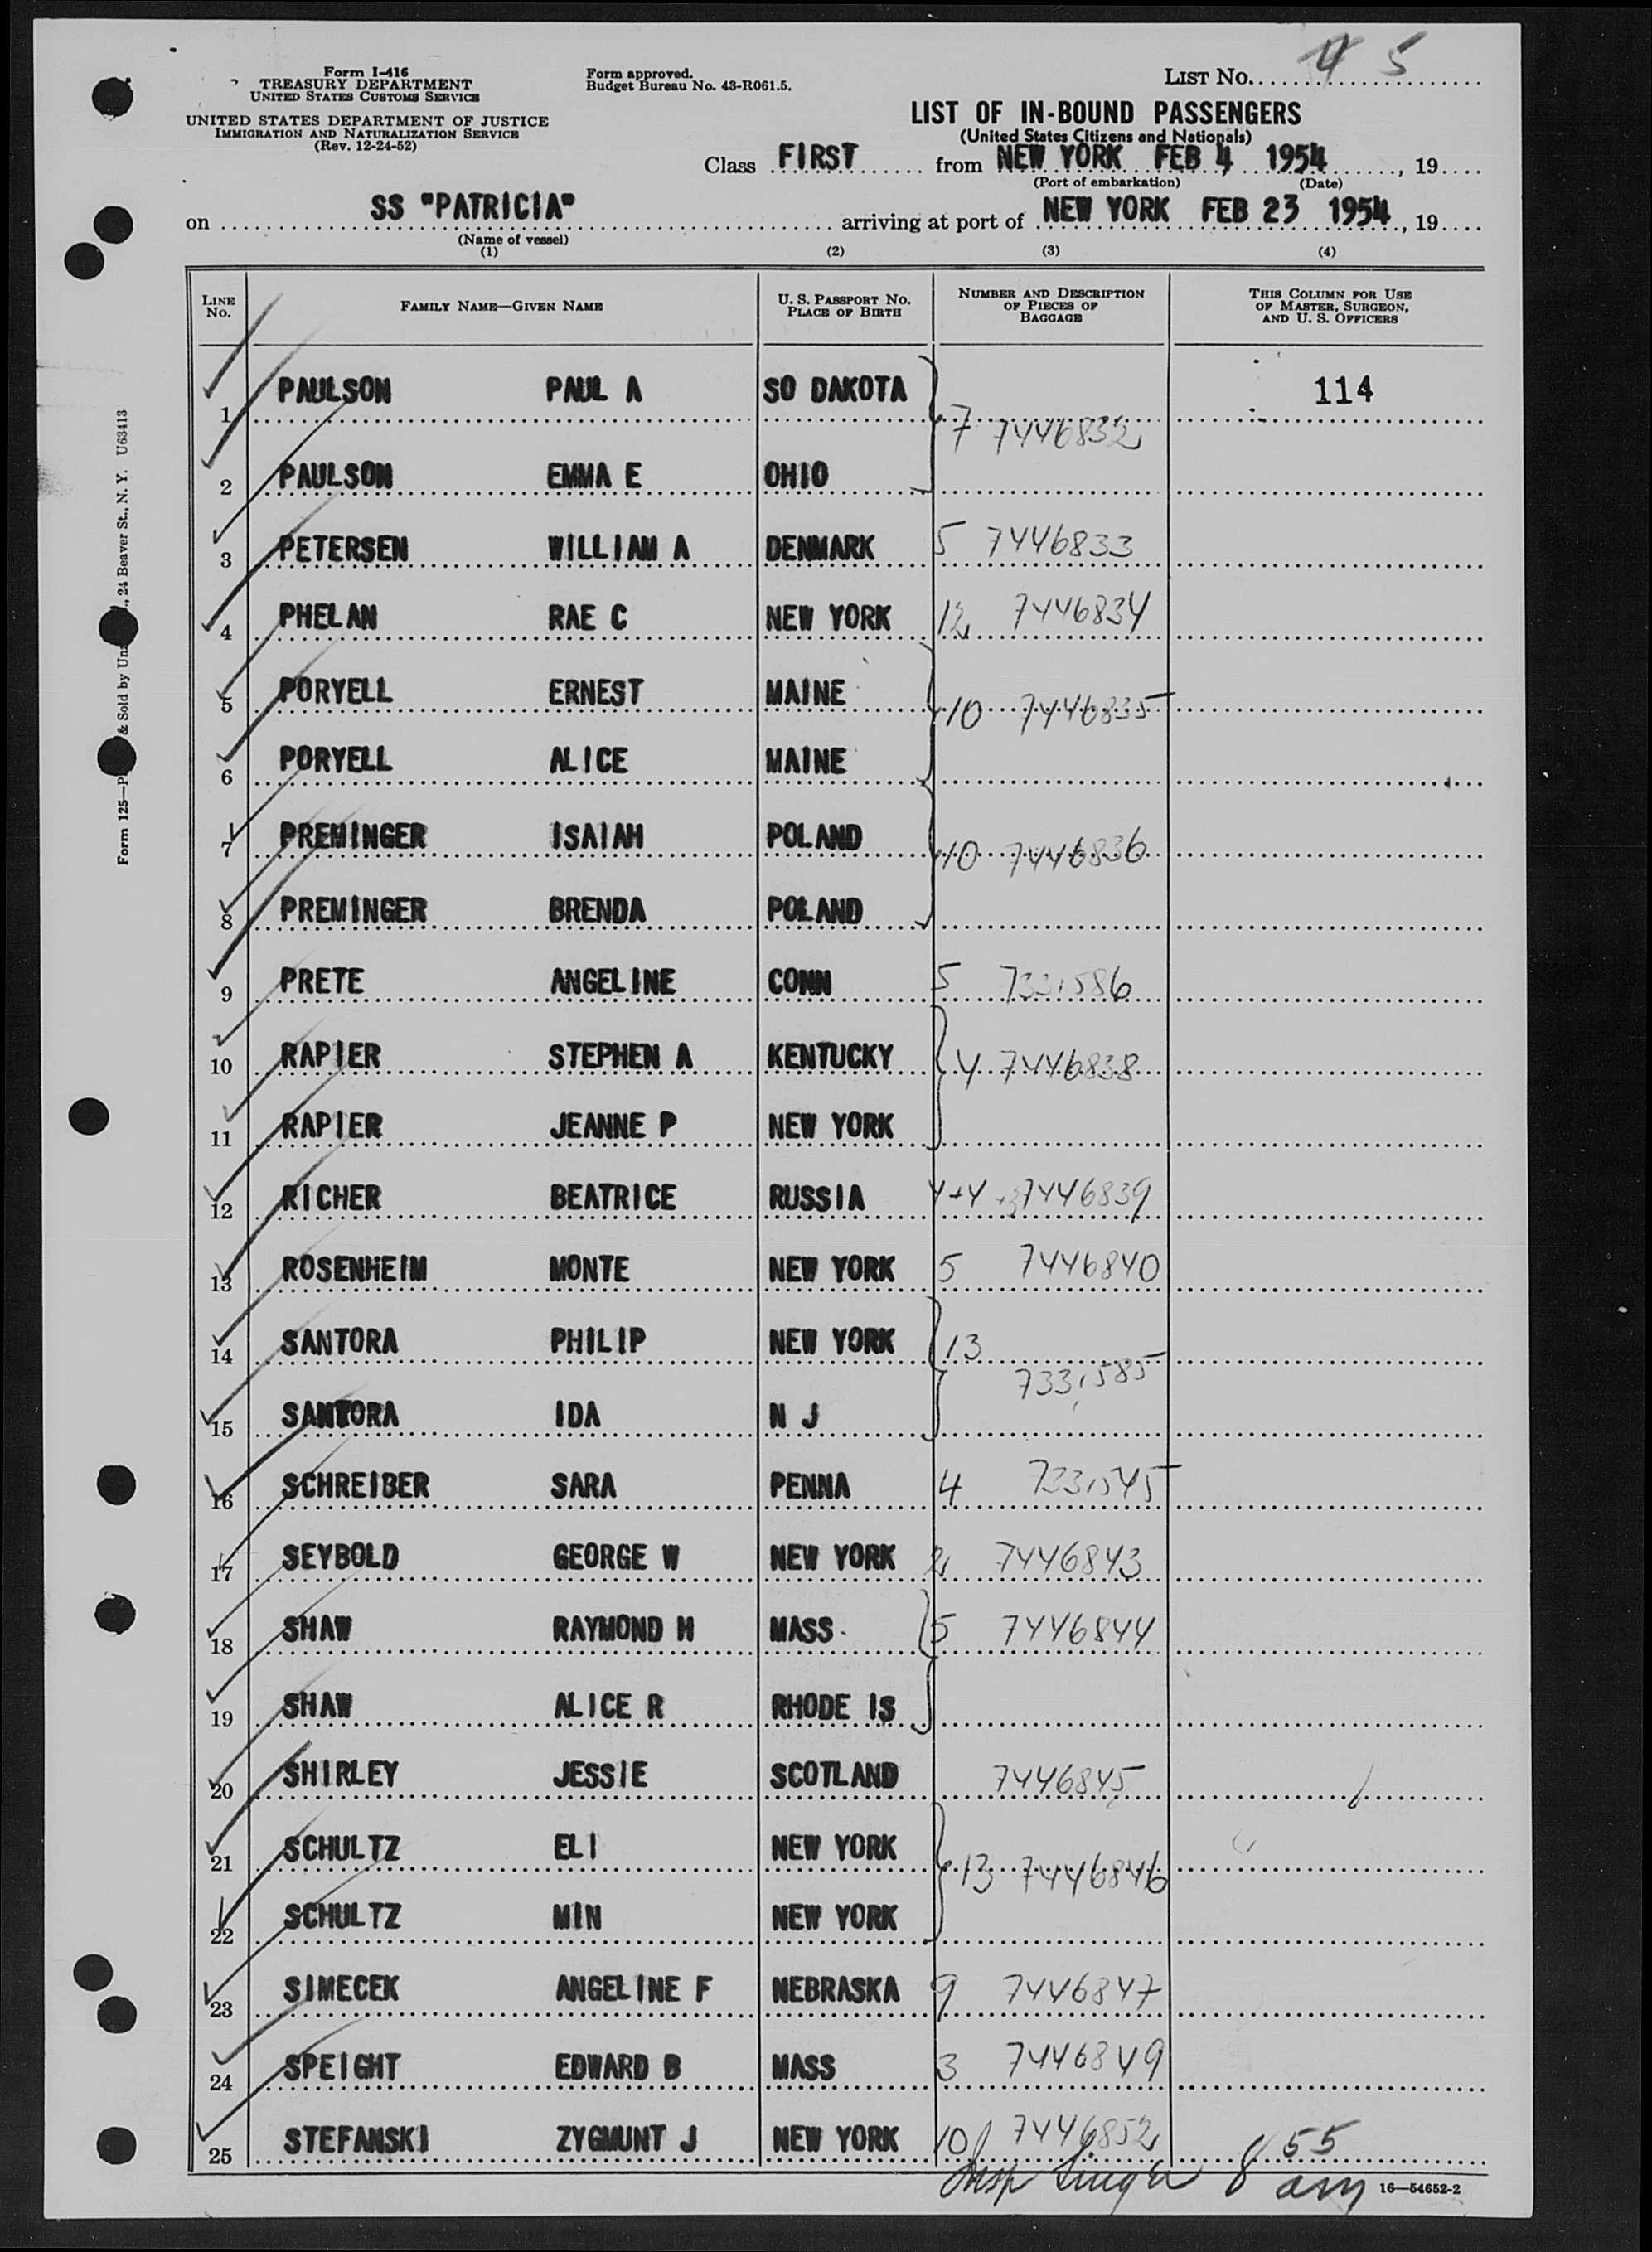 Form I-416
TREASURY DEPARTMENT
UNITED STATES CUSTOMS SERVICE
UNITED STATES DEPARTMENT OF JUSTICE
IMMIGRATION AND NATURALIZATION SERVICE
(Rev. 12-24-52)
Form approved.
Budget Bureau No. 43-R061.5.
LIST NO. 4 5
LIST OF IN-BOUND PASSENGERS
(United States Citizens and Nationals)
Class FIRST from NEW YORK FEB 4 1954, 19....
(Port of embarkation) (Date)
on SS "PATRICIA" arriving at port of NEW YORK FEB 23 1954, 19....
(Name of vessel)
(1) (2) (3) (4)
LINE NO. FAMILY NAME—GIVEN NAME U. S. PASSPORT NO. PLACE OF BIRTH NUMBER AND DESCRIPTION OF PIECES OF BAGGAGE THIS COLUMN FOR USE OF MASTER, SURGEON, AND U. S. OFFICERS
1 PAULSON PAUL A SO DAKOTA 7 7446832 114
2 PAULSON EMMA E OHIO
3 PETERSEN WILLIAM A DENMARK 5 7446833
4 PHELAN RAE C NEW YORK 12 7446834
5 PORYELL ERNEST MAINE 10 7446835
6 PORYELL ALICE MAINE
7 PREMINGER ISAIAH POLAND 10 7446836
8 PREMINGER BRENDA POLAND
9 PRETE ANGELINE CONN 5 7331586
10 RAPIER STEPHEN A KENTUCKY 4 7446838
11 RAPIER JEANNE P NEW YORK
12 RICHER BEATRICE RUSSIA 4+4 7446839
13 ROSENHEIM MONTE NEW YORK 5 7446840
14 SANTORA PHILIP NEW YORK 13
7331585
15 SANTORA IDA N J
16 SCHREIBER SARA PENNA 4 7331545
17 SEYBOLD GEORGE W NEW YORK 2 7446843
18 SHAW RAYMOND H MASS 5 7446844
19 SHAW ALICE R RHODE IS
20 SHIRLEY JESSIE SCOTLAND 7446845
21 SCHULTZ ELI NEW YORK 13 7446846
22 SCHULTZ MIN NEW YORK
23 SIMECEK ANGELINE F NEBRASKA 9 7446847
24 SPEIGHT EDWARD B MASS 3 7446849
25 STEFANSKI ZYGMUNT J NEW YORK 10 7446852
Insp 8 55 am
16—54652-2
Form 125—P & Sold by Un , 24 Beaver St., N. Y. U63413